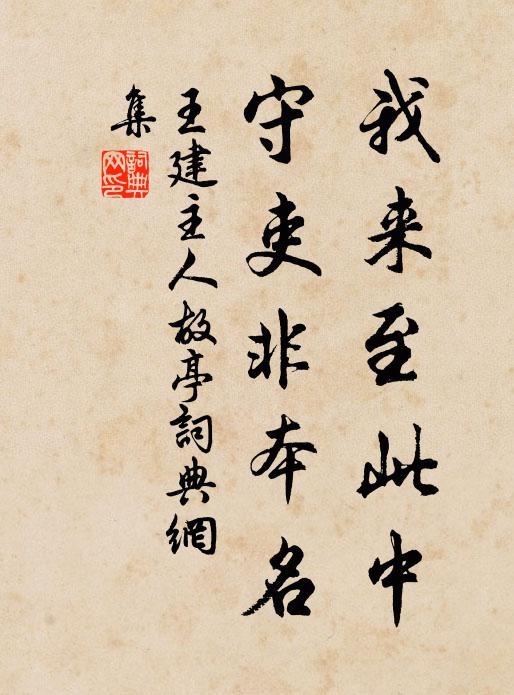 我来至此中
守吏非本名
王建主人故亭詞典網
集
詞典
网印